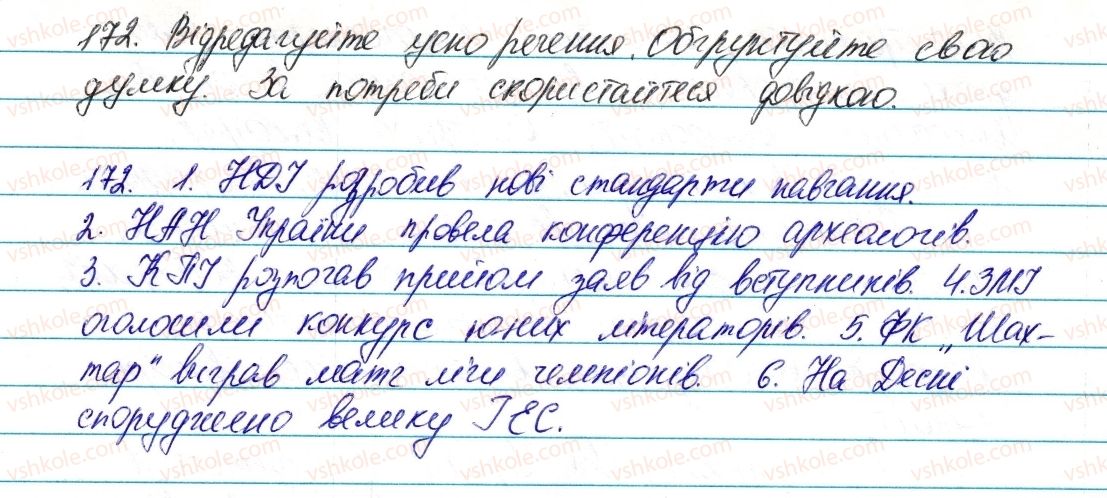 172. Відредагуйте усно речення. Обґрунтуйте свою
думку. За потреби скористайтеся довідкою.
172. 1. НДІ розробив нові стандарти навчання.
2. НАН України провела конференцію археологів.
3. КПІ розпочав прийом заяв від вступників. 4. ЗМІ
оголосили конкурс юних літераторів. 5. ФК „Шах-
тар" виграв матч ліги чемпіонів. 6. На Десні
споруджено велику ГЕС.